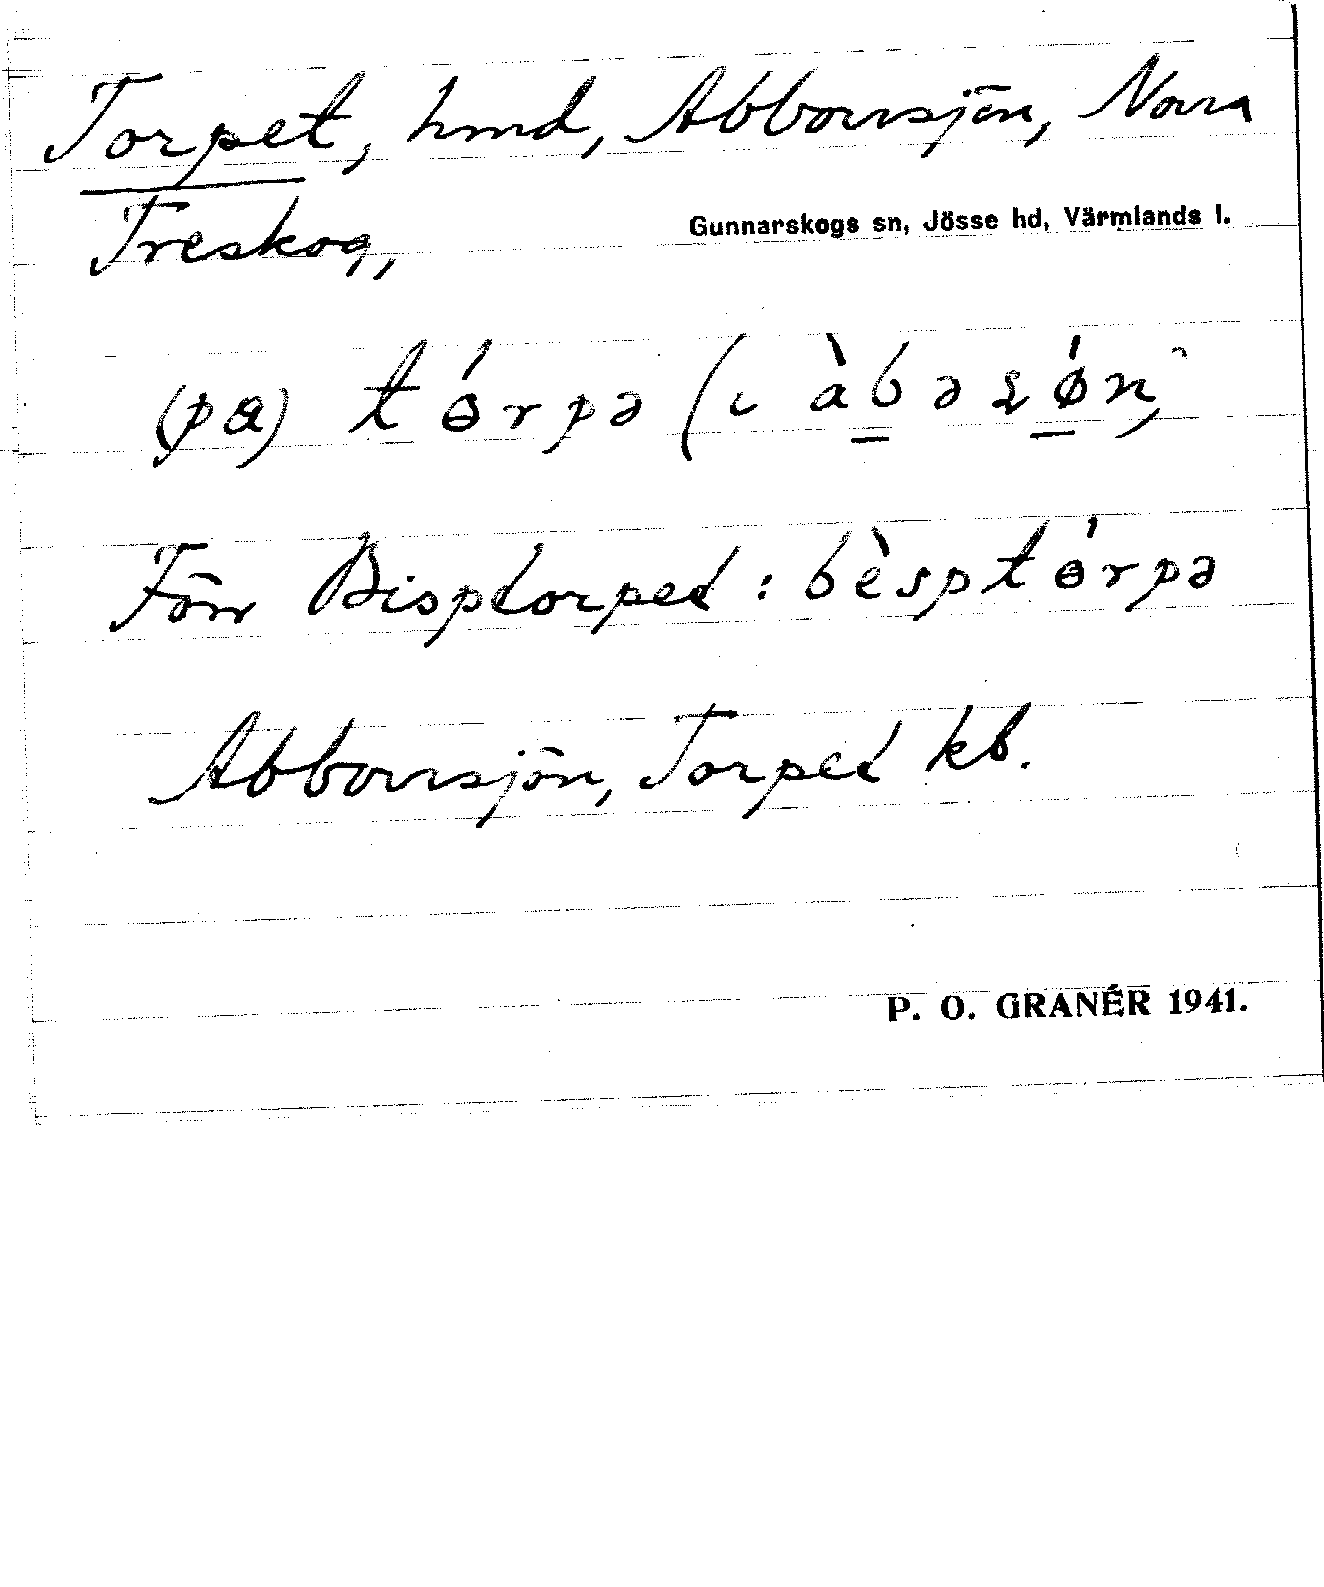 Torpet, hmd, Abborrsjön, Norra
Treskog,
Gunnarskogs sn, Jösse hd, Värmlands l.
(pa) tɵ́rpə (ɩ àbəʂǿn,
Förr Bisptorpet : bèsptɵ́rpə
Abborrsjön, Torpet kb.
P. O. GRANÉR 1941.